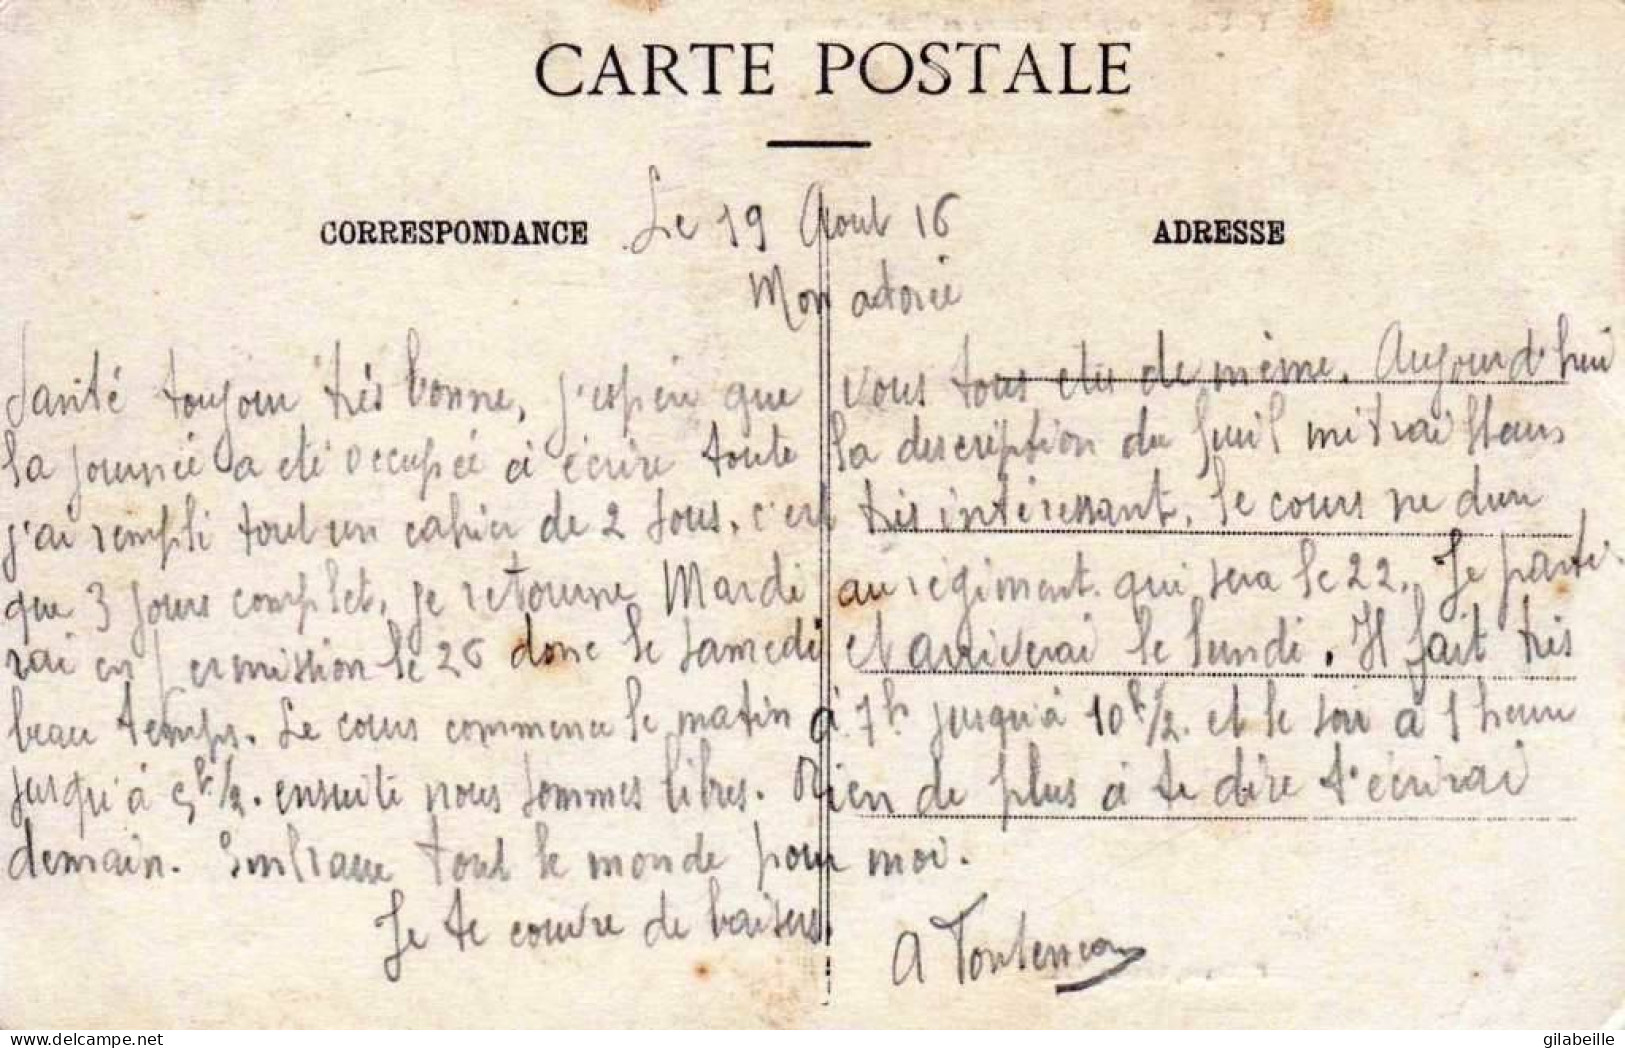 CARTE POSTALE
CORRESPONDANCE
ADRESSE
Le 19 Aout 16
Mon adorée
Santé toujour très bonne, j'espèr que vous tous etes de même. Aujourd'hui
la journée a été occupée à écrire toute la description du fusil mitrailleurs
j'ai rempli tout un cahier de 2 sous, c'est très intéressant, le cours ne dure
que 3 jours complet, je retourne Mardi au régiment qui sera le 22. Je parti
rai en permission le 26 donc le samedi et arriverai le lundi. Il fait très
beau temps. Le cours commence le matin à 7h jusqu'à 10h 1/2 et le soir à 1 heure
jusqu'à 5h 1/2. ensuite nous sommes libres. Rien de plus à te dire t'écrirai
demain. Embrasse tout le monde pour moi.
Je te couvre de baisers.
gilabeille